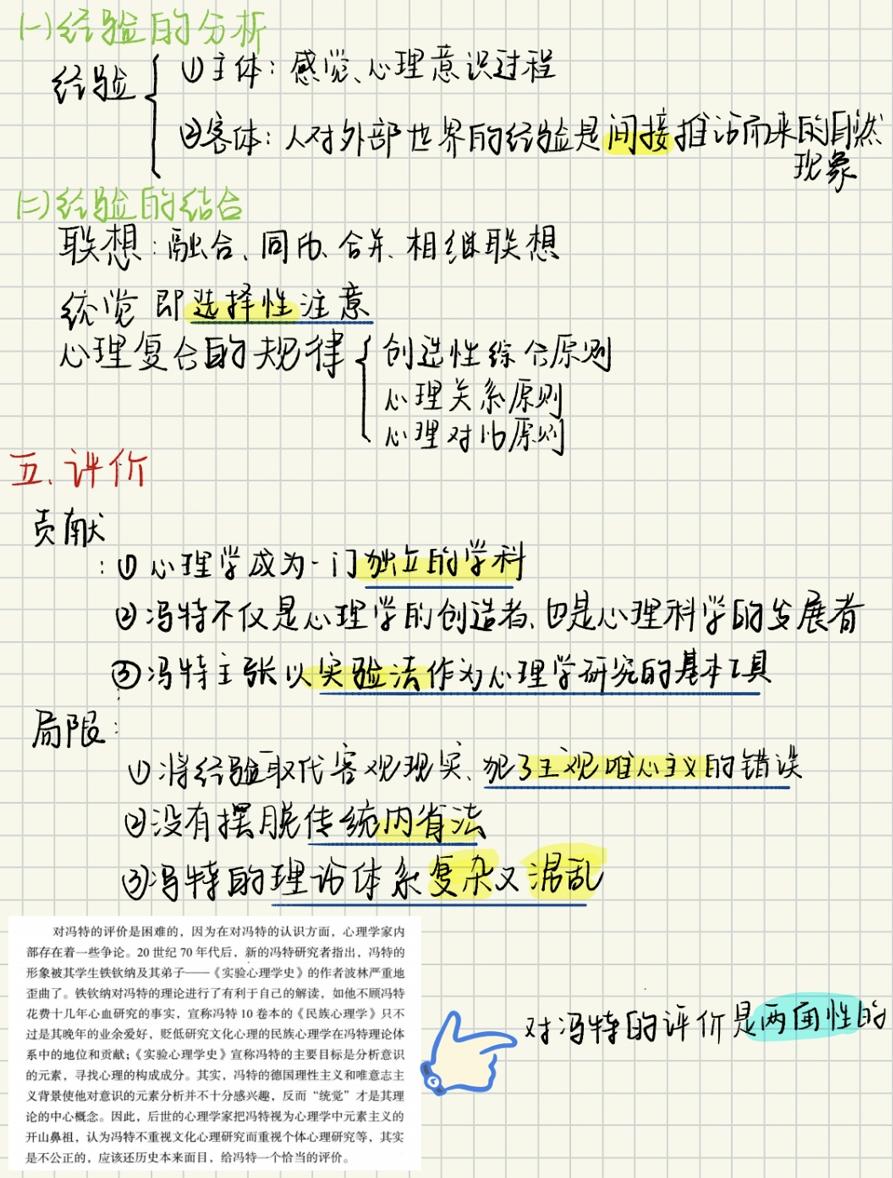 (一)经验的分析
经验
①主体: 感觉、心理意识过程
②客体: 人对外部世界的经验是间接推论而来的自然
现象
(二)经验的结合
联想: 融合、同化、合并、相继联想
统觉 即选择性注意
心理复合的规律
创造性综合原则
心理关系原则
心理对比原则
五、评价
贡献
: ①心理学成为一门独立的学科
②冯特不仅是心理学的创造者、也是心理科学的发展者
③冯特主张以实验法作为心理学研究的基本工具
局限:
①将经验取代客观现实、犯了主观唯心主义的错误
②没有摆脱传统内省法
③冯特的理论体系复杂又混乱
对冯特的评价是困难的，因为在对冯特的认识方面，心理学家内
部存在着一些争论。20 世纪 70 年代后，新的冯特研究者指出，冯特的
形象被其学生铁钦纳及其弟子——《实验心理学史》的作者波林严重地
歪曲了。铁钦纳对冯特的理论进行了有利于自己的解读，如他不顾冯特
花费十几年心血研究的事实，宣称冯特 10 卷本的《民族心理学》只不
过是其晚年的业余爱好，贬低研究文化心理的民族心理学在冯特理论体
系中的地位和贡献；《实验心理学史》宣称冯特的主要目标是分析意识
的元素，寻找心理的构成成分。其实，冯特的德国理性主义和唯意志主
义背景使他对意识的元素分析并不十分感兴趣，反而“统觉”才是其理
论的中心概念。因此，后世的心理学家把冯特视为心理学中元素主义的
开山鼻祖，认为冯特不重视文化心理研究而重视个体心理研究等，其实
是不公正的，应该还历史本来面目，给冯特一个恰当的评价。
对冯特的评价是两面性的